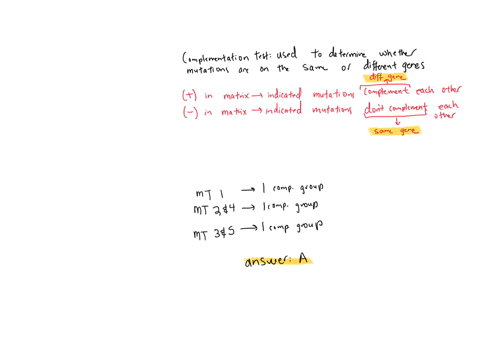 Complementation test: used to determine whether
mutations are on the same or different genes
diff. gene
(+) in matrix → indicated mutations complement each other
(-) in matrix → indicated mutations don't complement each other
same gene
MT 1 → 1 comp. group
MT 2&4 → 1 comp. group
MT 3&5 → 1 comp group
answer: A